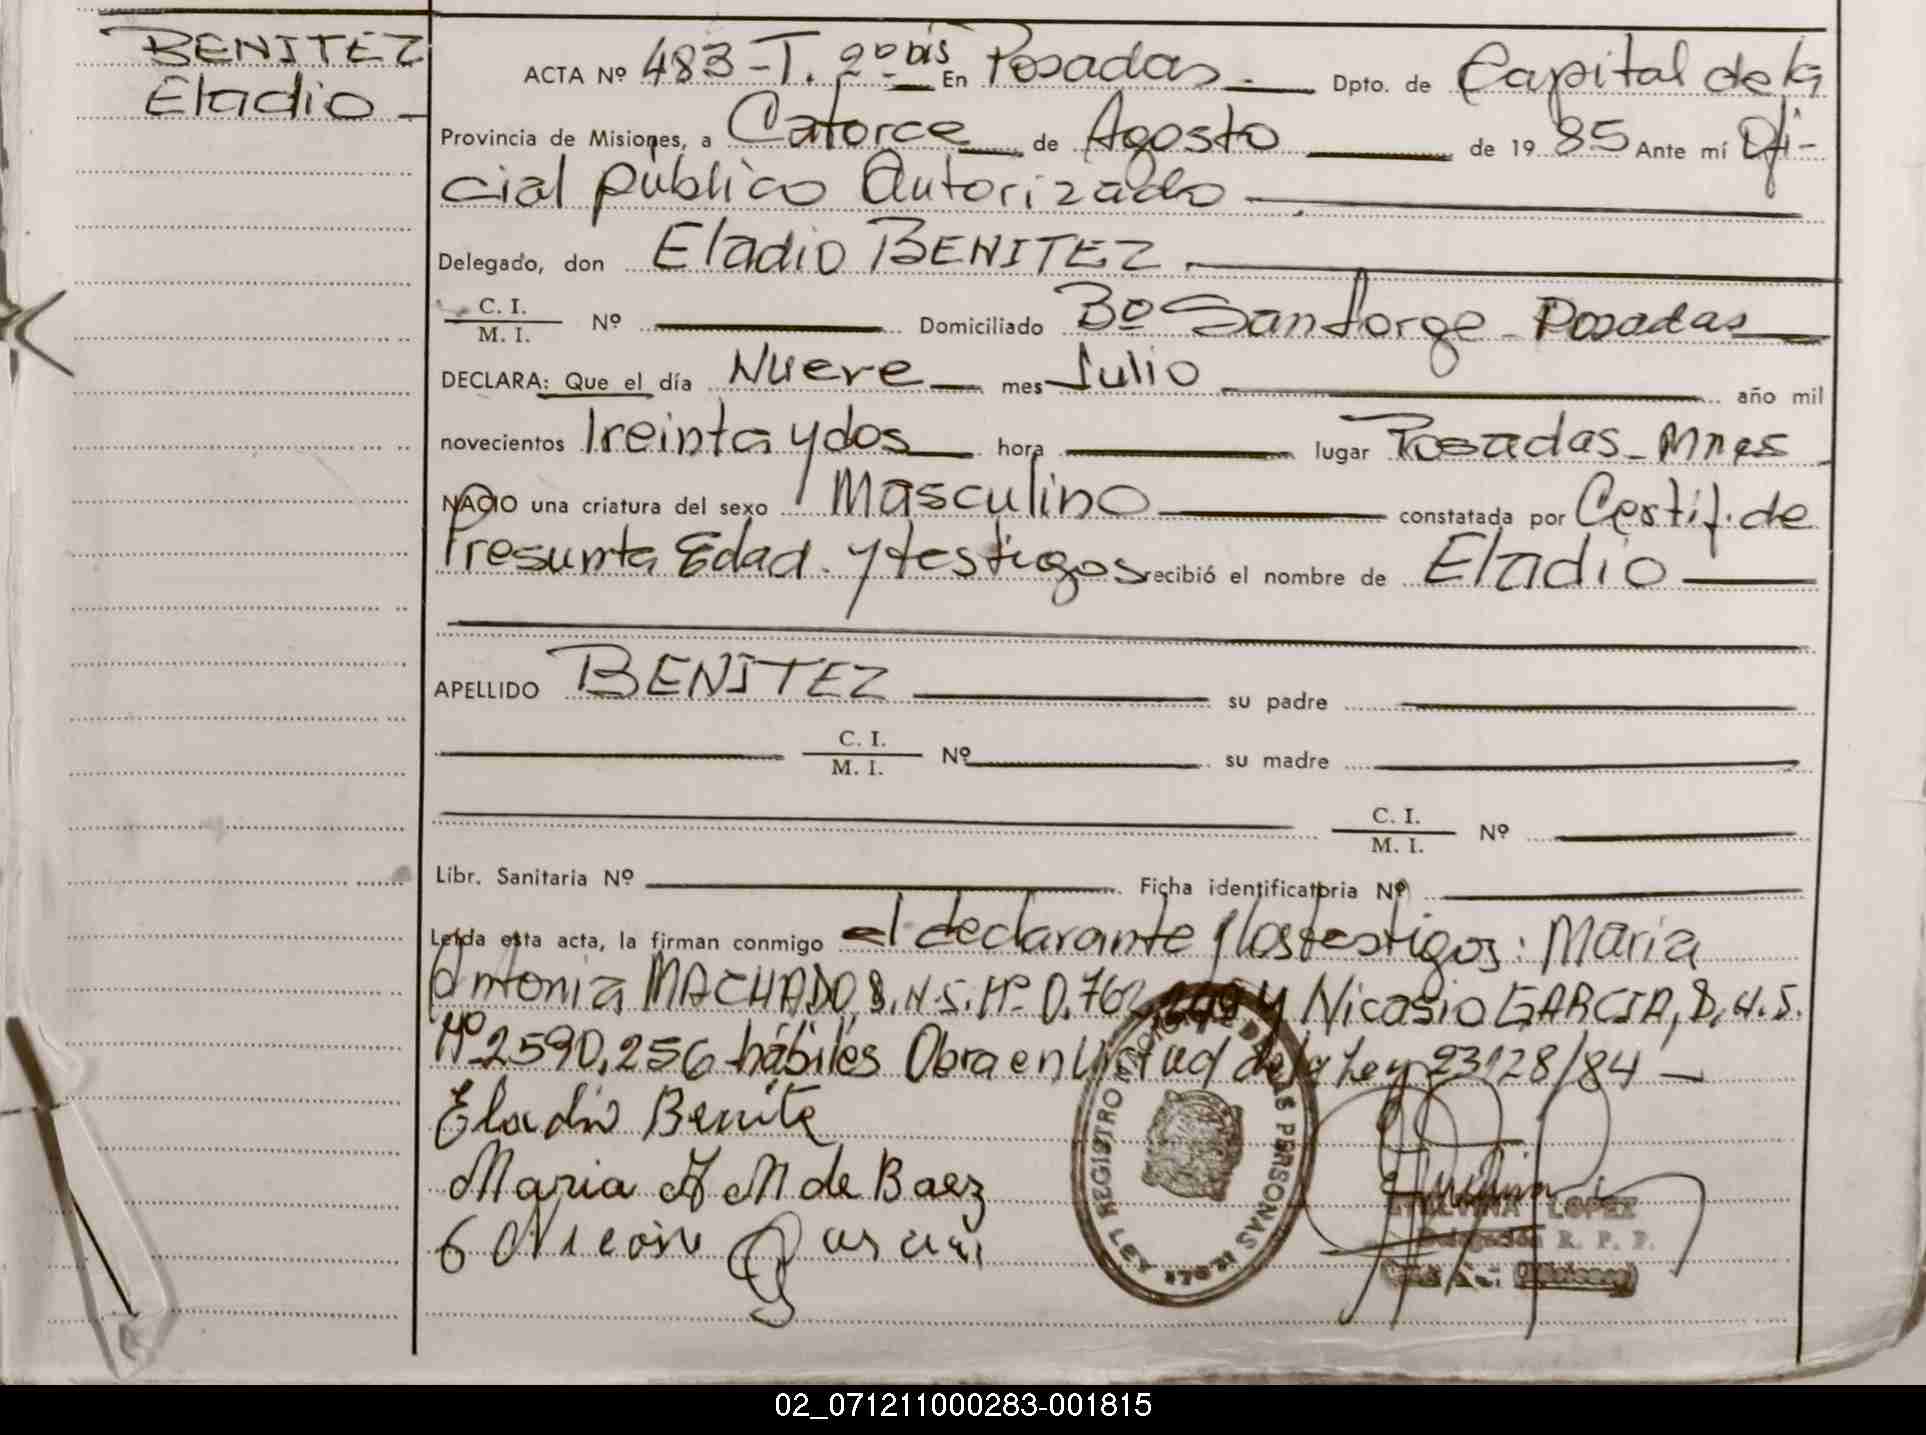 BENITEZ
Eladio
ACTA Nº 483-T. 2º bis En Posadas Dpto. de Capital de la
Provincia de Misiones, a Catorce de Agosto de 1985 Ante mí Ofi-
cial público Autorizado
Delegado, don Eladio BENITEZ
C. I.
M. I. Nº Domiciliado Bº San Jorge - Posadas
DECLARA: Que el día Nueve mes Julio año mil
novecientos treinta y dos hora lugar Posadas - Mnes
NACIO una criatura del sexo Masculino constatada por Certif. de
Presunta Edad. y testigos recibió el nombre de Eladio
APELLIDO BENITEZ su padre
C. I.
M. I. Nº su madre
C. I.
M. I. Nº
Libr. Sanitaria Nº Ficha identificatoria Nº
Leída esta acta, la firman conmigo el declarante y los testigos: Maria
Antonia MACHADO, Nº 0.762. y Nicasio GARCIA,
Nº 2590.256 hábiles Obra en Virtud de la Ley 23128/84
Eladio Benite
Maria A M de Baez
LEY REGISTRO DE LAS PERSONAS
LOPEZ
Delegación R. P. P.
02_071211000283-001815